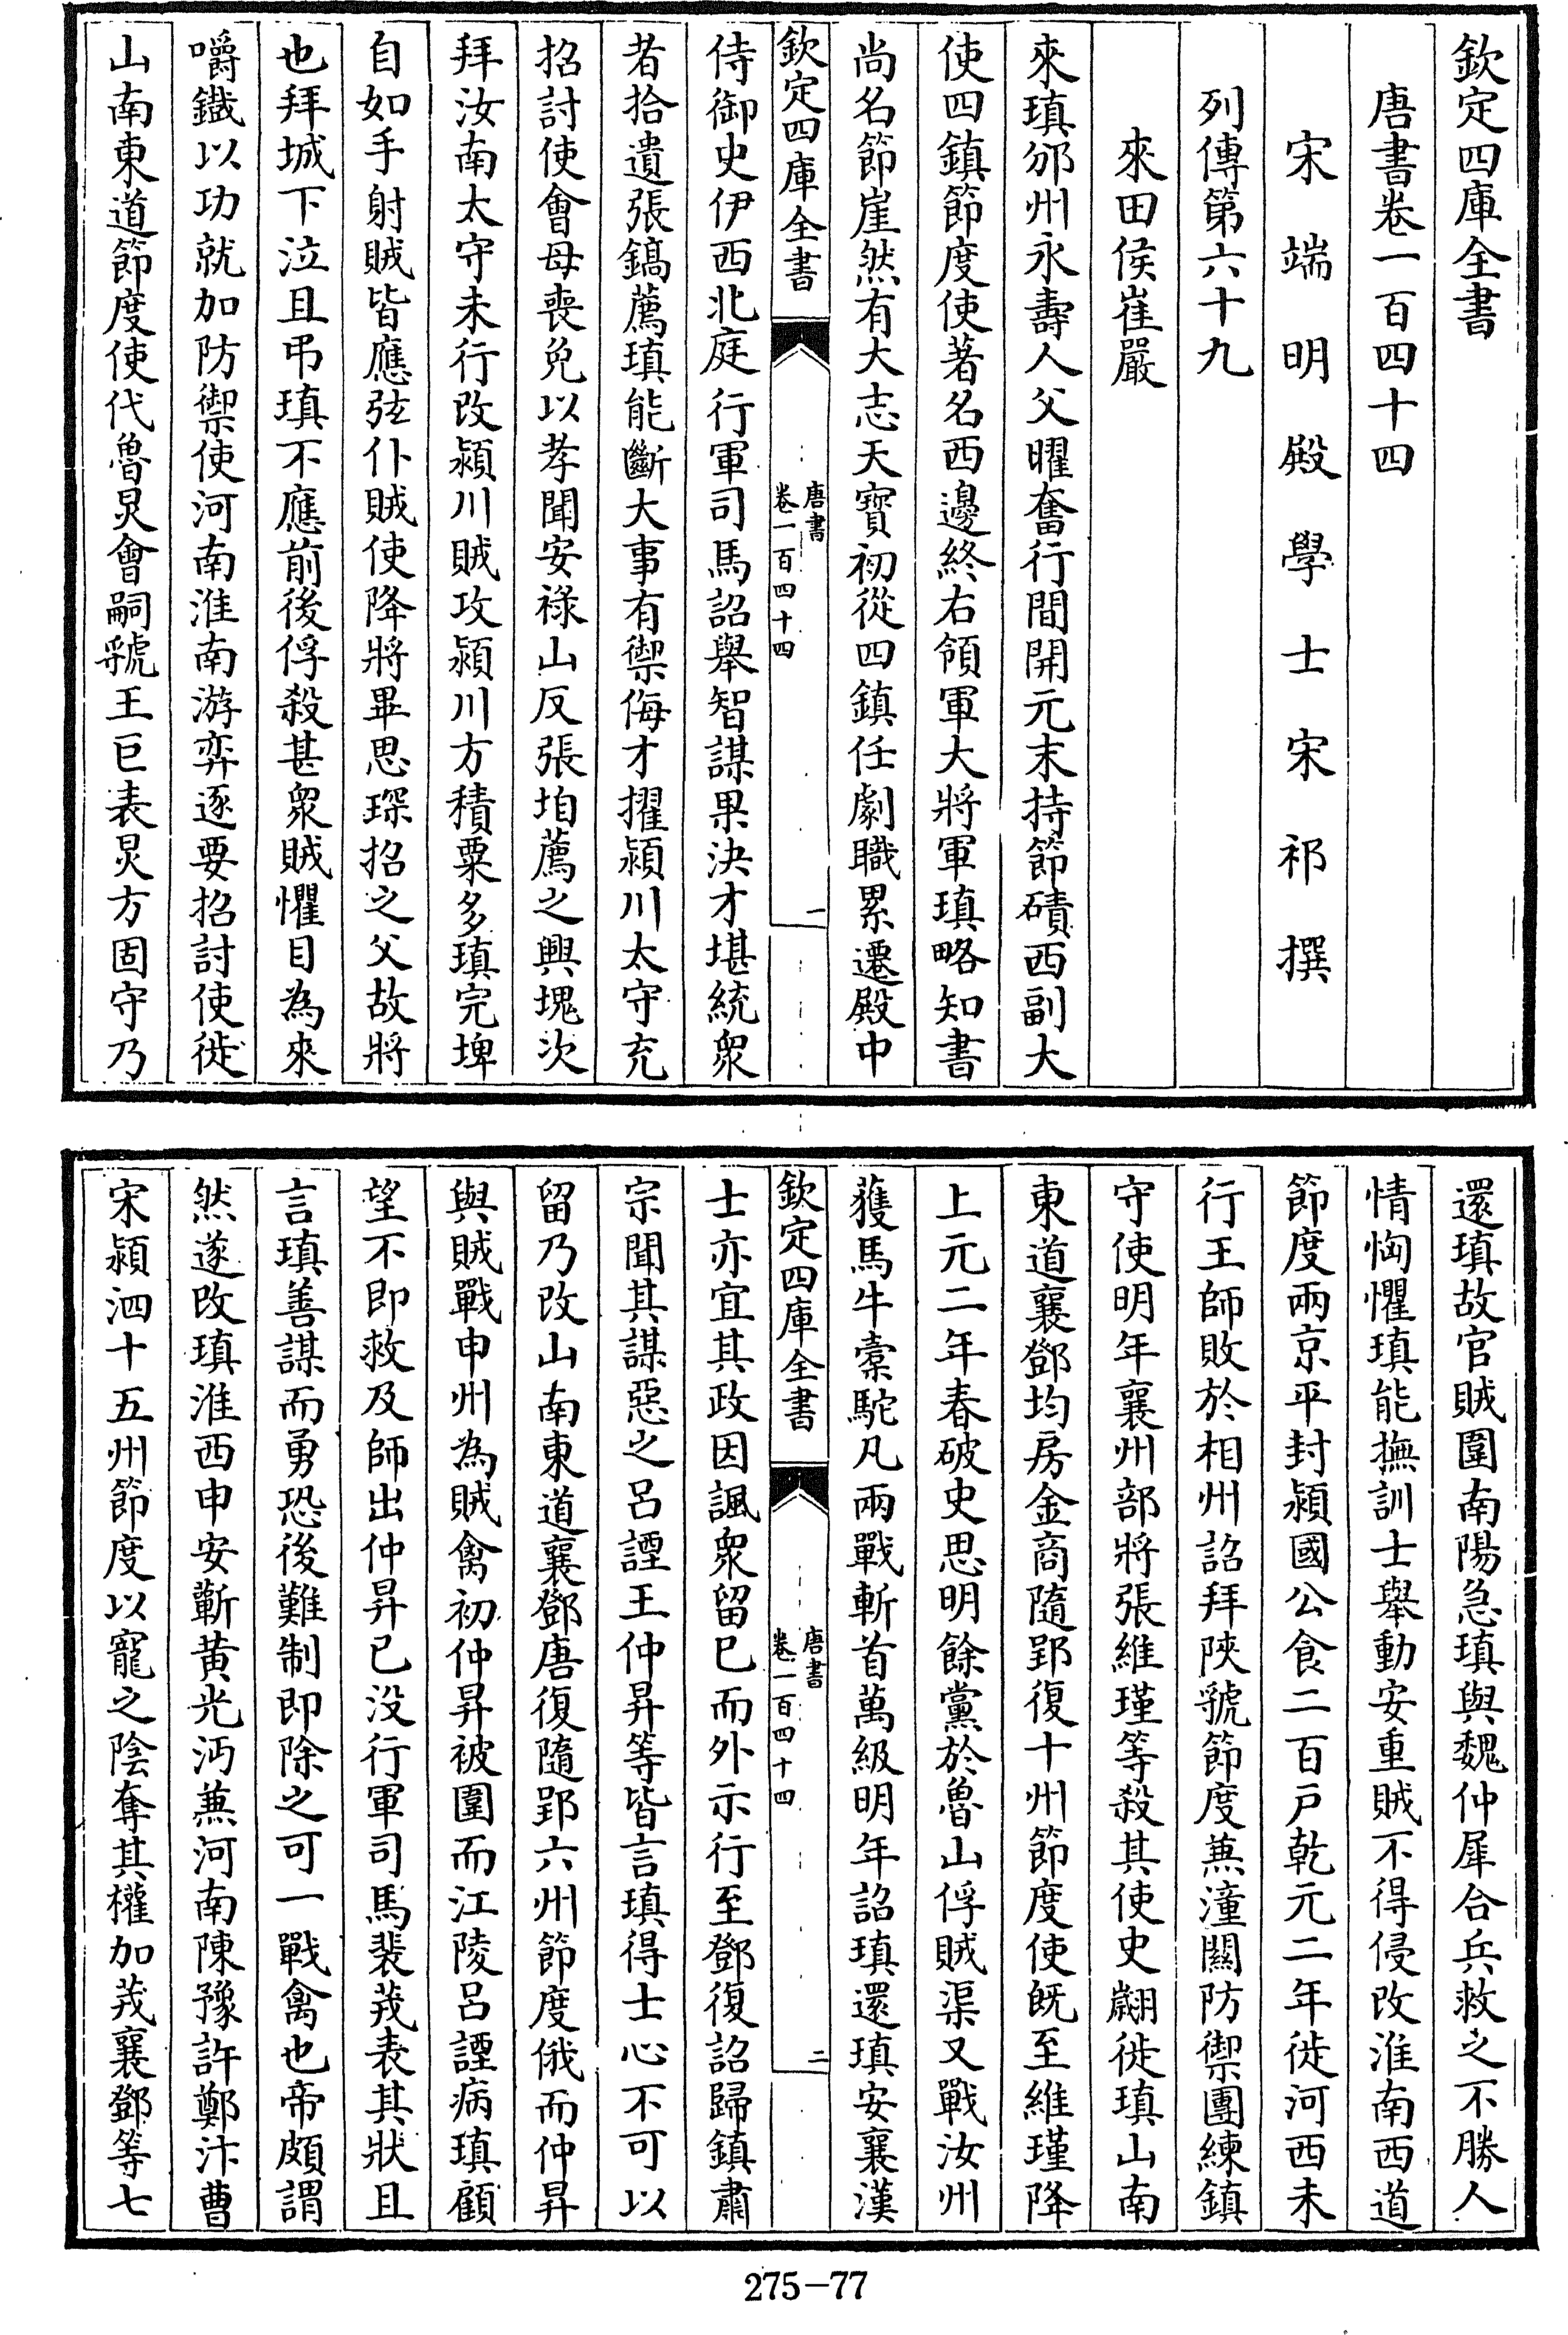 欽定四庫全書
唐書卷一百四十四
宋端明殿學士宋祁撰
列傳第六十九
來田侯崔嚴
來瑱邠州永壽人父曜奮行間開元末持節磧西副大
使四鎮節度使著名西邊終右領軍大將軍瑱略知書
尚名節崖然有大志天寶初從四鎮任劇職累遷殿中
欽定四庫全書
唐書
卷一百四十四
一
侍御史伊西北庭行軍司馬詔舉智謀果決才堪統衆
者拾遺張鎬薦瑱能斷大事有禦侮才擢潁川太守充
招討使會母喪免以孝聞安祿山反張垍薦之興塊次
拜汝南太守未行改潁川賊攻潁川方積粟多瑱完埤
自如手射賊皆應弦仆賊使降將畢思琛招之父故將
也拜城下泣且弔瑱不應前後俘殺甚衆賊懼目為來
嚼鐵以功就加防禦使河南淮南游弈逐要招討使徙
山南東道節度使代魯炅會嗣虢王巨表炅方固守乃
還瑱故官賊圍南陽急瑱與魏仲犀合兵救之不勝人
情恟懼瑱能撫訓士舉動安重賊不得侵改淮南西道
節度兩京平封潁國公食二百戶乾元二年徙河西未
行王師敗於相州詔拜陝虢節度兼潼關防禦團練鎮
守使明年襄州部將張維瑾等殺其使史翽徙瑱山南
東道襄鄧均房金商隨郢復十州節度使既至維瑾降
上元二年春破史思明餘黨於魯山俘賊渠又戰汝州
獲馬牛橐駝凡兩戰斬首萬級明年詔瑱還瑱安襄漢
欽定四庫全書
唐書
卷一百四十四
二
士亦宜其政因諷衆留已而外示行至鄧復詔歸鎮肅
宗聞其謀惡之呂諲王仲昇等皆言瑱得士心不可以
留乃改山南東道襄鄧唐復隨郢六州節度俄而仲昇
與賊戰申州為賊禽初仲昇被圍而江陵呂諲病瑱顧
望不即救及師出仲昇已没行軍司馬裴茙表其狀且
言瑱善謀而勇恐後難制即除之可一戰禽也帝頗謂
然遂改瑱淮西申安蘄黄光沔兼河南陳豫許鄭汴曹
宋潁泗十五州節度以寵之陰奪其權加茙襄鄧等七
275-77